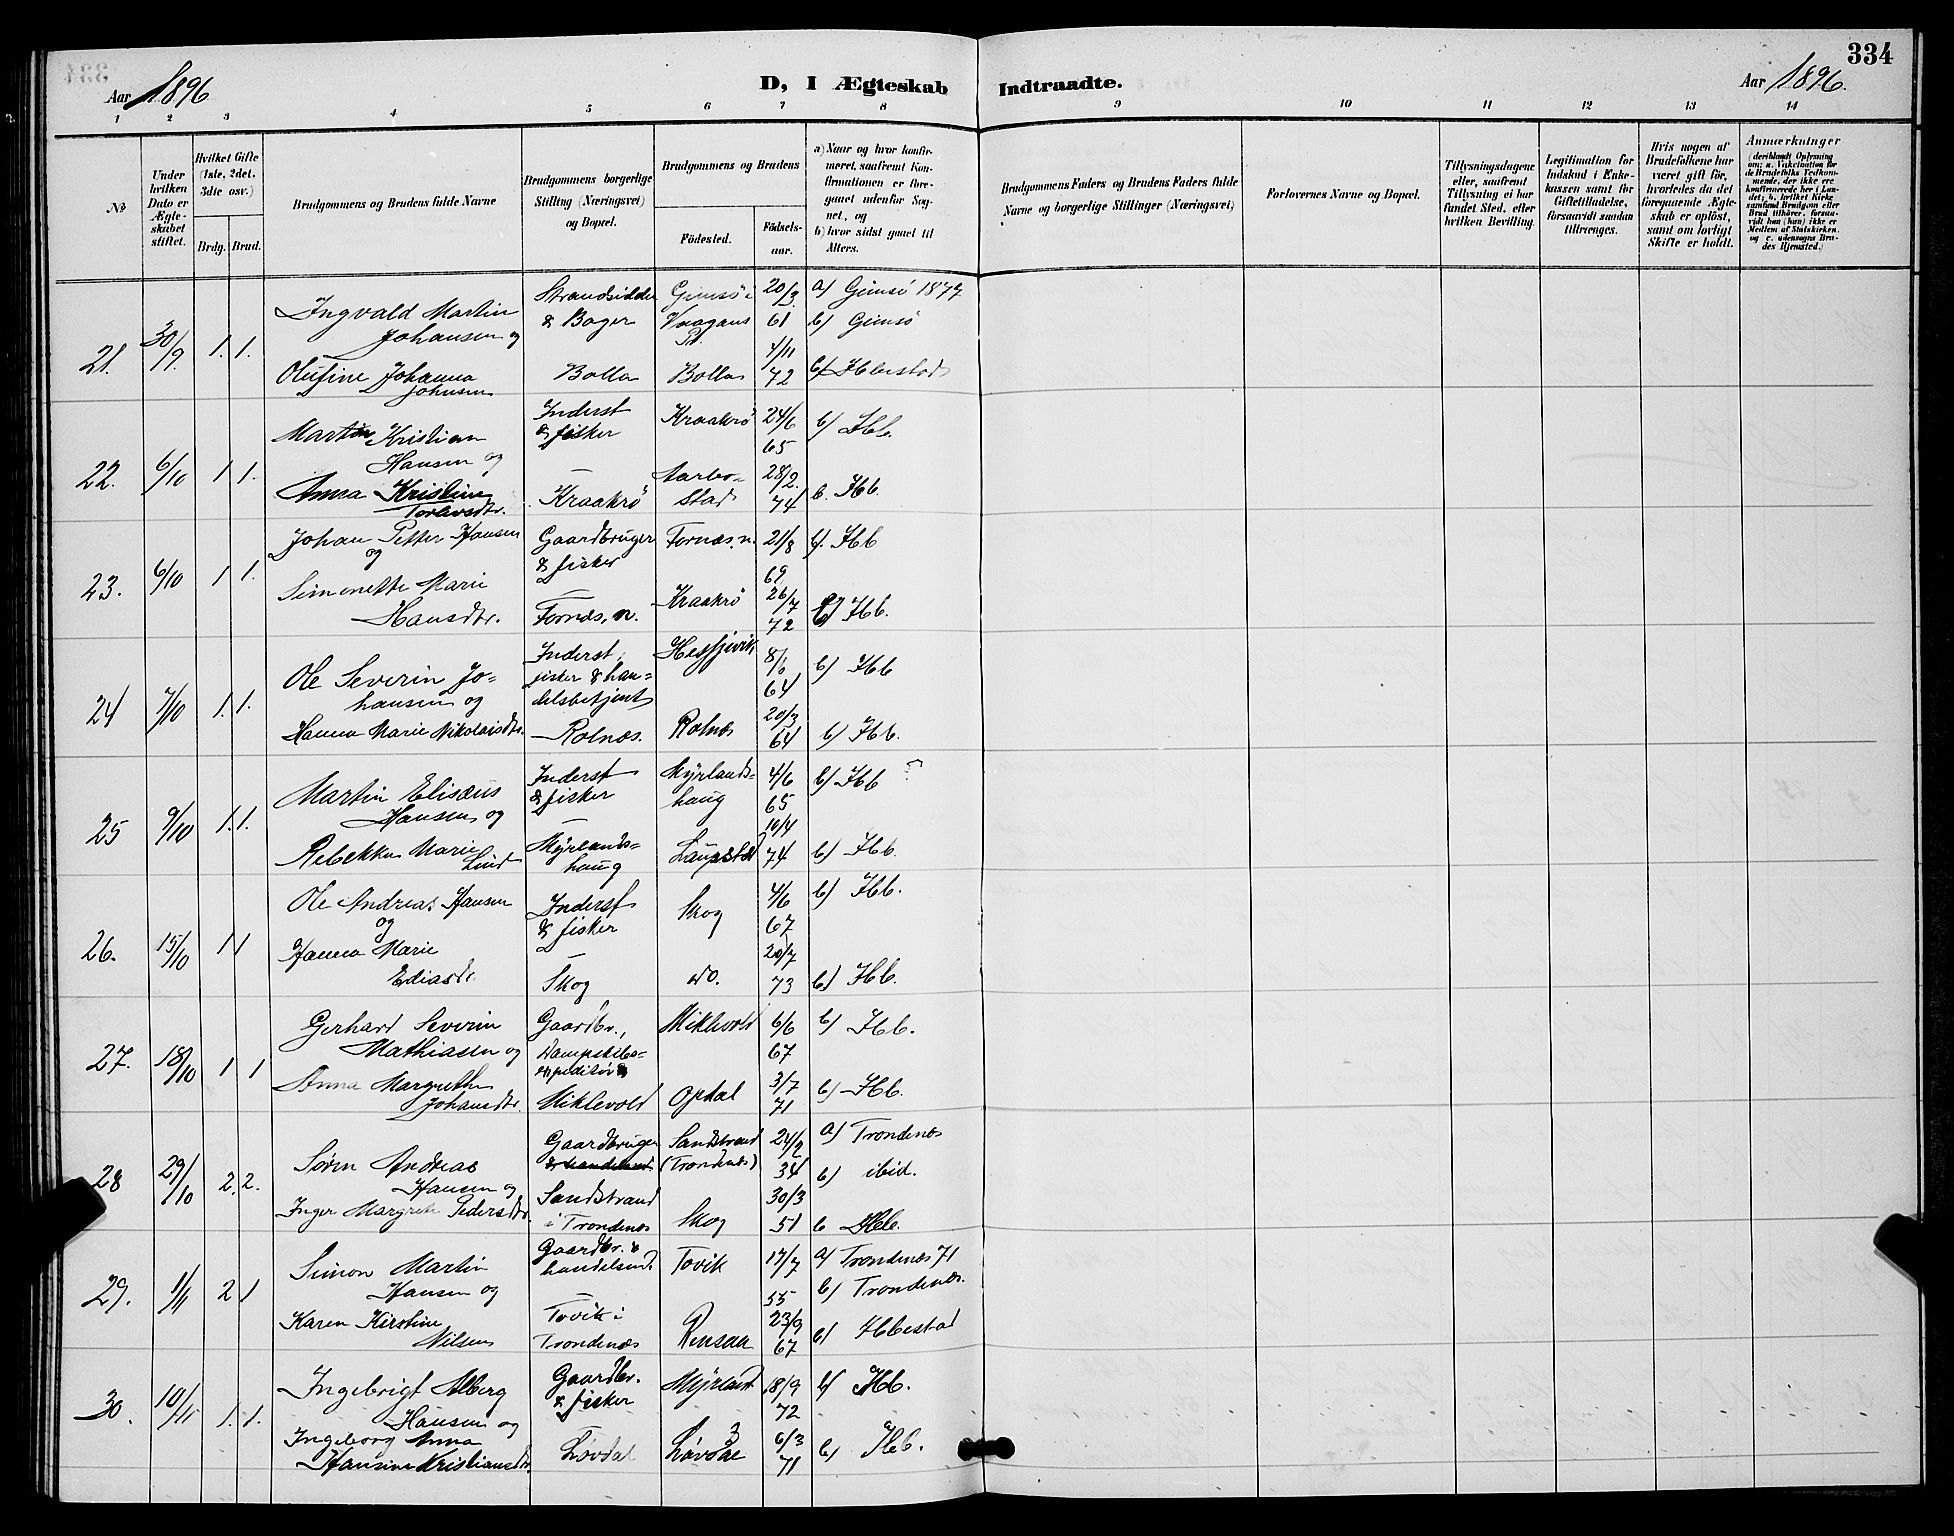 334
Aar 1896
D, I Ægteskab Indtraadte.
Aar 1896.
1 2 3 4 5 6 7 8 9 10 11 12 13 14
No
Under hvilken Dato er Ægteskabet stiftet.
Hvilket Gifte (1ste, 2det, 3die osv.)
Brdg. Brud.
Brudgommens og Brudens fulde Navne
Brudgommens borgerlige Stilling (Næringsvei) og Bopæl.
Brudgommens og Brudens
Fødested.
Fødselsaar.
a) Naar og hvor konfirmeret, saafremt Konfirmationen er foregaaet udenfor Sognet, og
b) hvor sidst gaaet til Alters.
Brudgommens Faders og Brudens Faders fulde Navne og borgerlige Stillinger (Næringsvei)
Forlovernes Navne og Bopæl.
Tillysningsdagene eller, saafremt Tillysning ei har fundet Sted, efter hvilken Bevilling.
Legitimation for Indskud i Enkekassen samt for Giftetilladelse, forsaavidt saadan tiltrænges.
Hvis nogen af Brudefolkene har været gift før, hvorledes da det foregaaende Ægteskab er opløst, samt om lovligt Skifte er holdt.
Anmærkninger
21. 30/9. 1. 1.
Ingvald Martin
Johansen og
Olufine Johanna
Johnsen
Strandsidder
& Bager
Bolla
Gimsø i
Vaagans
Bolla
20/3. 61
4/11 72
a) Gimsø 1877
b) Gimsø
b) Ibbestad
22. 6/10 1 1.
Martin Kristian
Hansen og
Anna Kristine
Torlevsdtr.
Inderst
& fisker
Kraakrø
Kraakrø
Aarbo-
stad
24/6 65
28/2. 74
b) Ibb.
b. Ibb.
23. 6/10 1 1.
Johan Petter Hansen
og
Simonette Marie
Hansdtr.
Gaardbruger
& fisker
Fornæs, n.
Fornæs, n.
Kraakrø
21/8 69
26/7 72
b). Ibb
b) Ibb.
24 7/10 1. 1.
Ole Severin Jo-
hansen og
Hanna Marie Nikolaisdtr.
Inderst,
fisker & han-
delsbetjent
Rolnæs.
Hesfjevik
Rolnæs
64
20/3 64
b) Ibb
b) Ibb.
25 9/10 1. 1.
Martin Elisæus
Hansen og
Rebekka Marie
Lind
Inderst
& fisker
Myrlands-
haug
Myrlands-
haug
Laupstad
4/6 65
10/4 74
b) Ibb
b) Ibb.
26. 15/10 1 1
Ole Andreas Hansen
og
Hanna Marie
Ediasdtr.
Inderst
& fisker
Skog
Skog
do.
4/6 67
20/7 73
b) Ibb.
b) Ibb.
27. 18/10 1 1
Gerhard Severin
Mathiasen og
Anna Margrethe
Johansdtr.
Gaardbr.,
Dampskibs-
expeditør
Miklevold
Miklevold
Opdal
6/6 67
3/7 71
b) Ibb.
b) Ibb.
28 29/10 2. 2.
Søren Andreas
Hansen og
Inger Margrete Pedersdtr.
Gaardbruger
Sandstrand
i Trondenæs
Sandstrand
(Trondenæs)
Skog
24/2 34
30/3 51
a) Trondenæs
b) ibid.
b Ibb.
29. 1/11 2 1
Simon Martin
Hansen og
Karen Kirstine
Nilsen
Gaardbr. &
handelsmd.
Tovik i
Trondenæs
Tovik
Rensaa
17/7 55
23/9 67
a) Trondenæs 71
b) Trondenæs.
b) Ibbestad
30. 10/11 1. 1.
Ingebrigt Alberg
Hansen og
Ingeborg Anna
Hansine Kristiansdtr.
Gaardbr.
& fisker
Løvdal
Myrland
Løvdal
18/9 72
6/3 71
b) Ibb.
b) Ibb.